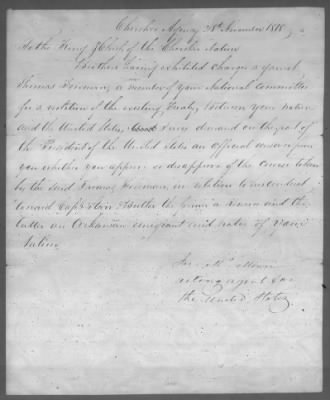 Cherokee Agency 28th November 1818
To the King & Chiefs of the Cherokee Nation
Brothers Having exhibited charges against
Thomas Foreman, a member of your National Committee
for a violation of the existing Treaty between your nation
and the United States, I now demand on the part of
the President of the United States an official answer from
you whether you approve or disapprove of the course taken
by the said Thomas Foreman, in relation to
toward Capt. John the former a and the
latter an Arkansas emigrant and native of your
Nation
acting agent for
the United States